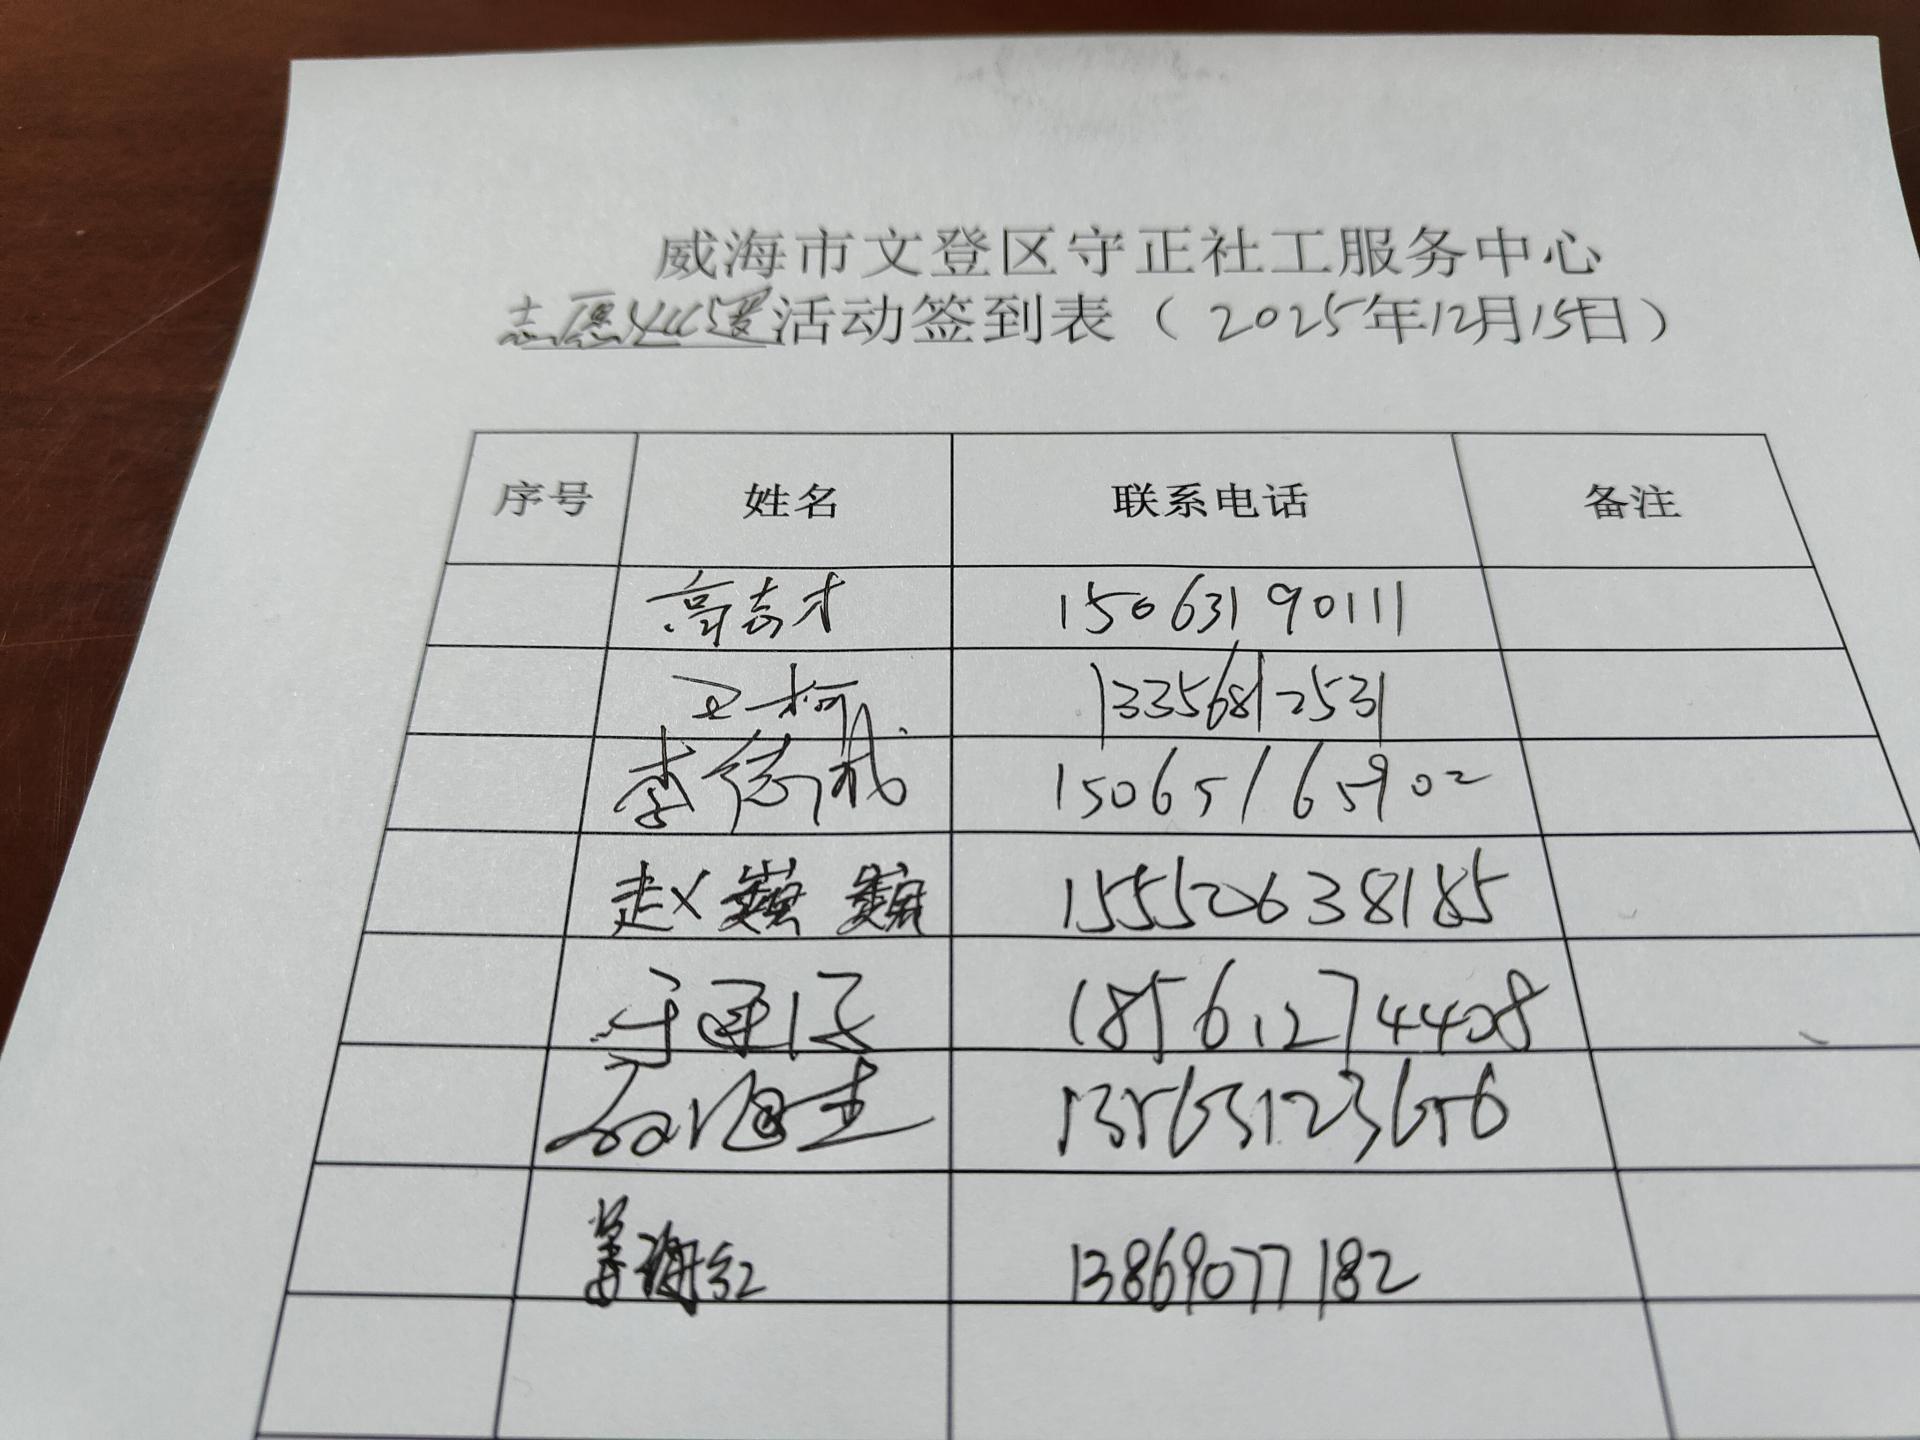 威海市文登区守正社工服务中心
志愿 活动签到表（2025年12月15日）
序号 姓名 联系电话 备注
高志才 15063190111
王柯 13356812531
李德成 15065165902
赵巍巍 15552638185
于 18561274408
海 13563123656
姜海红 13869077182